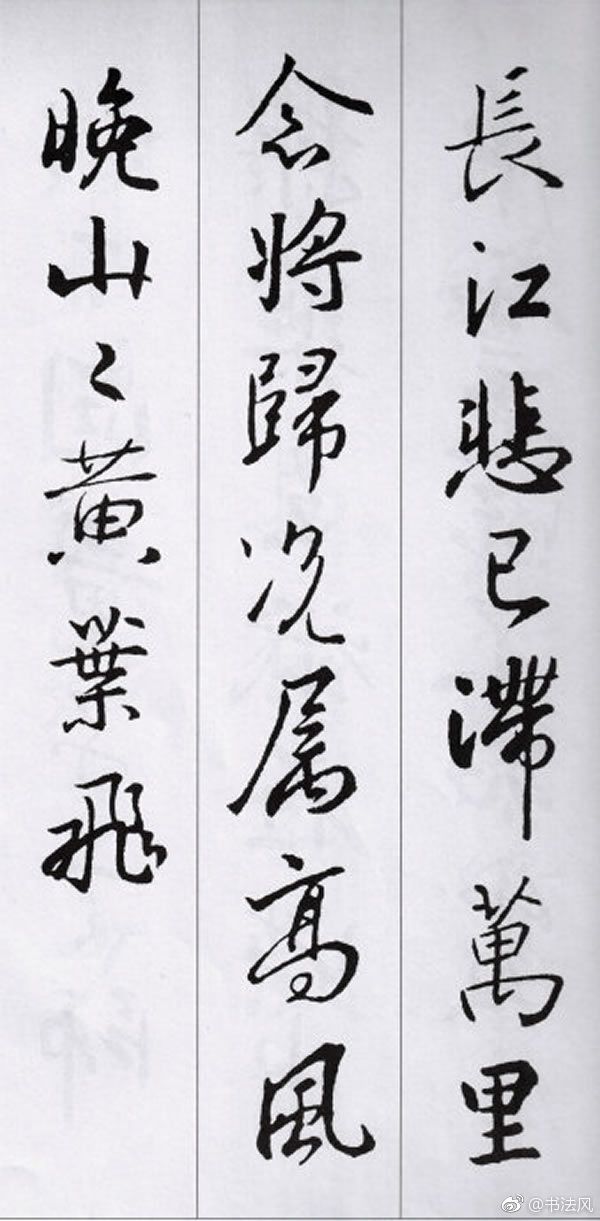 長江悲已滞萬里
念將歸况属高風
晚山〻黄葉飛
@书法风